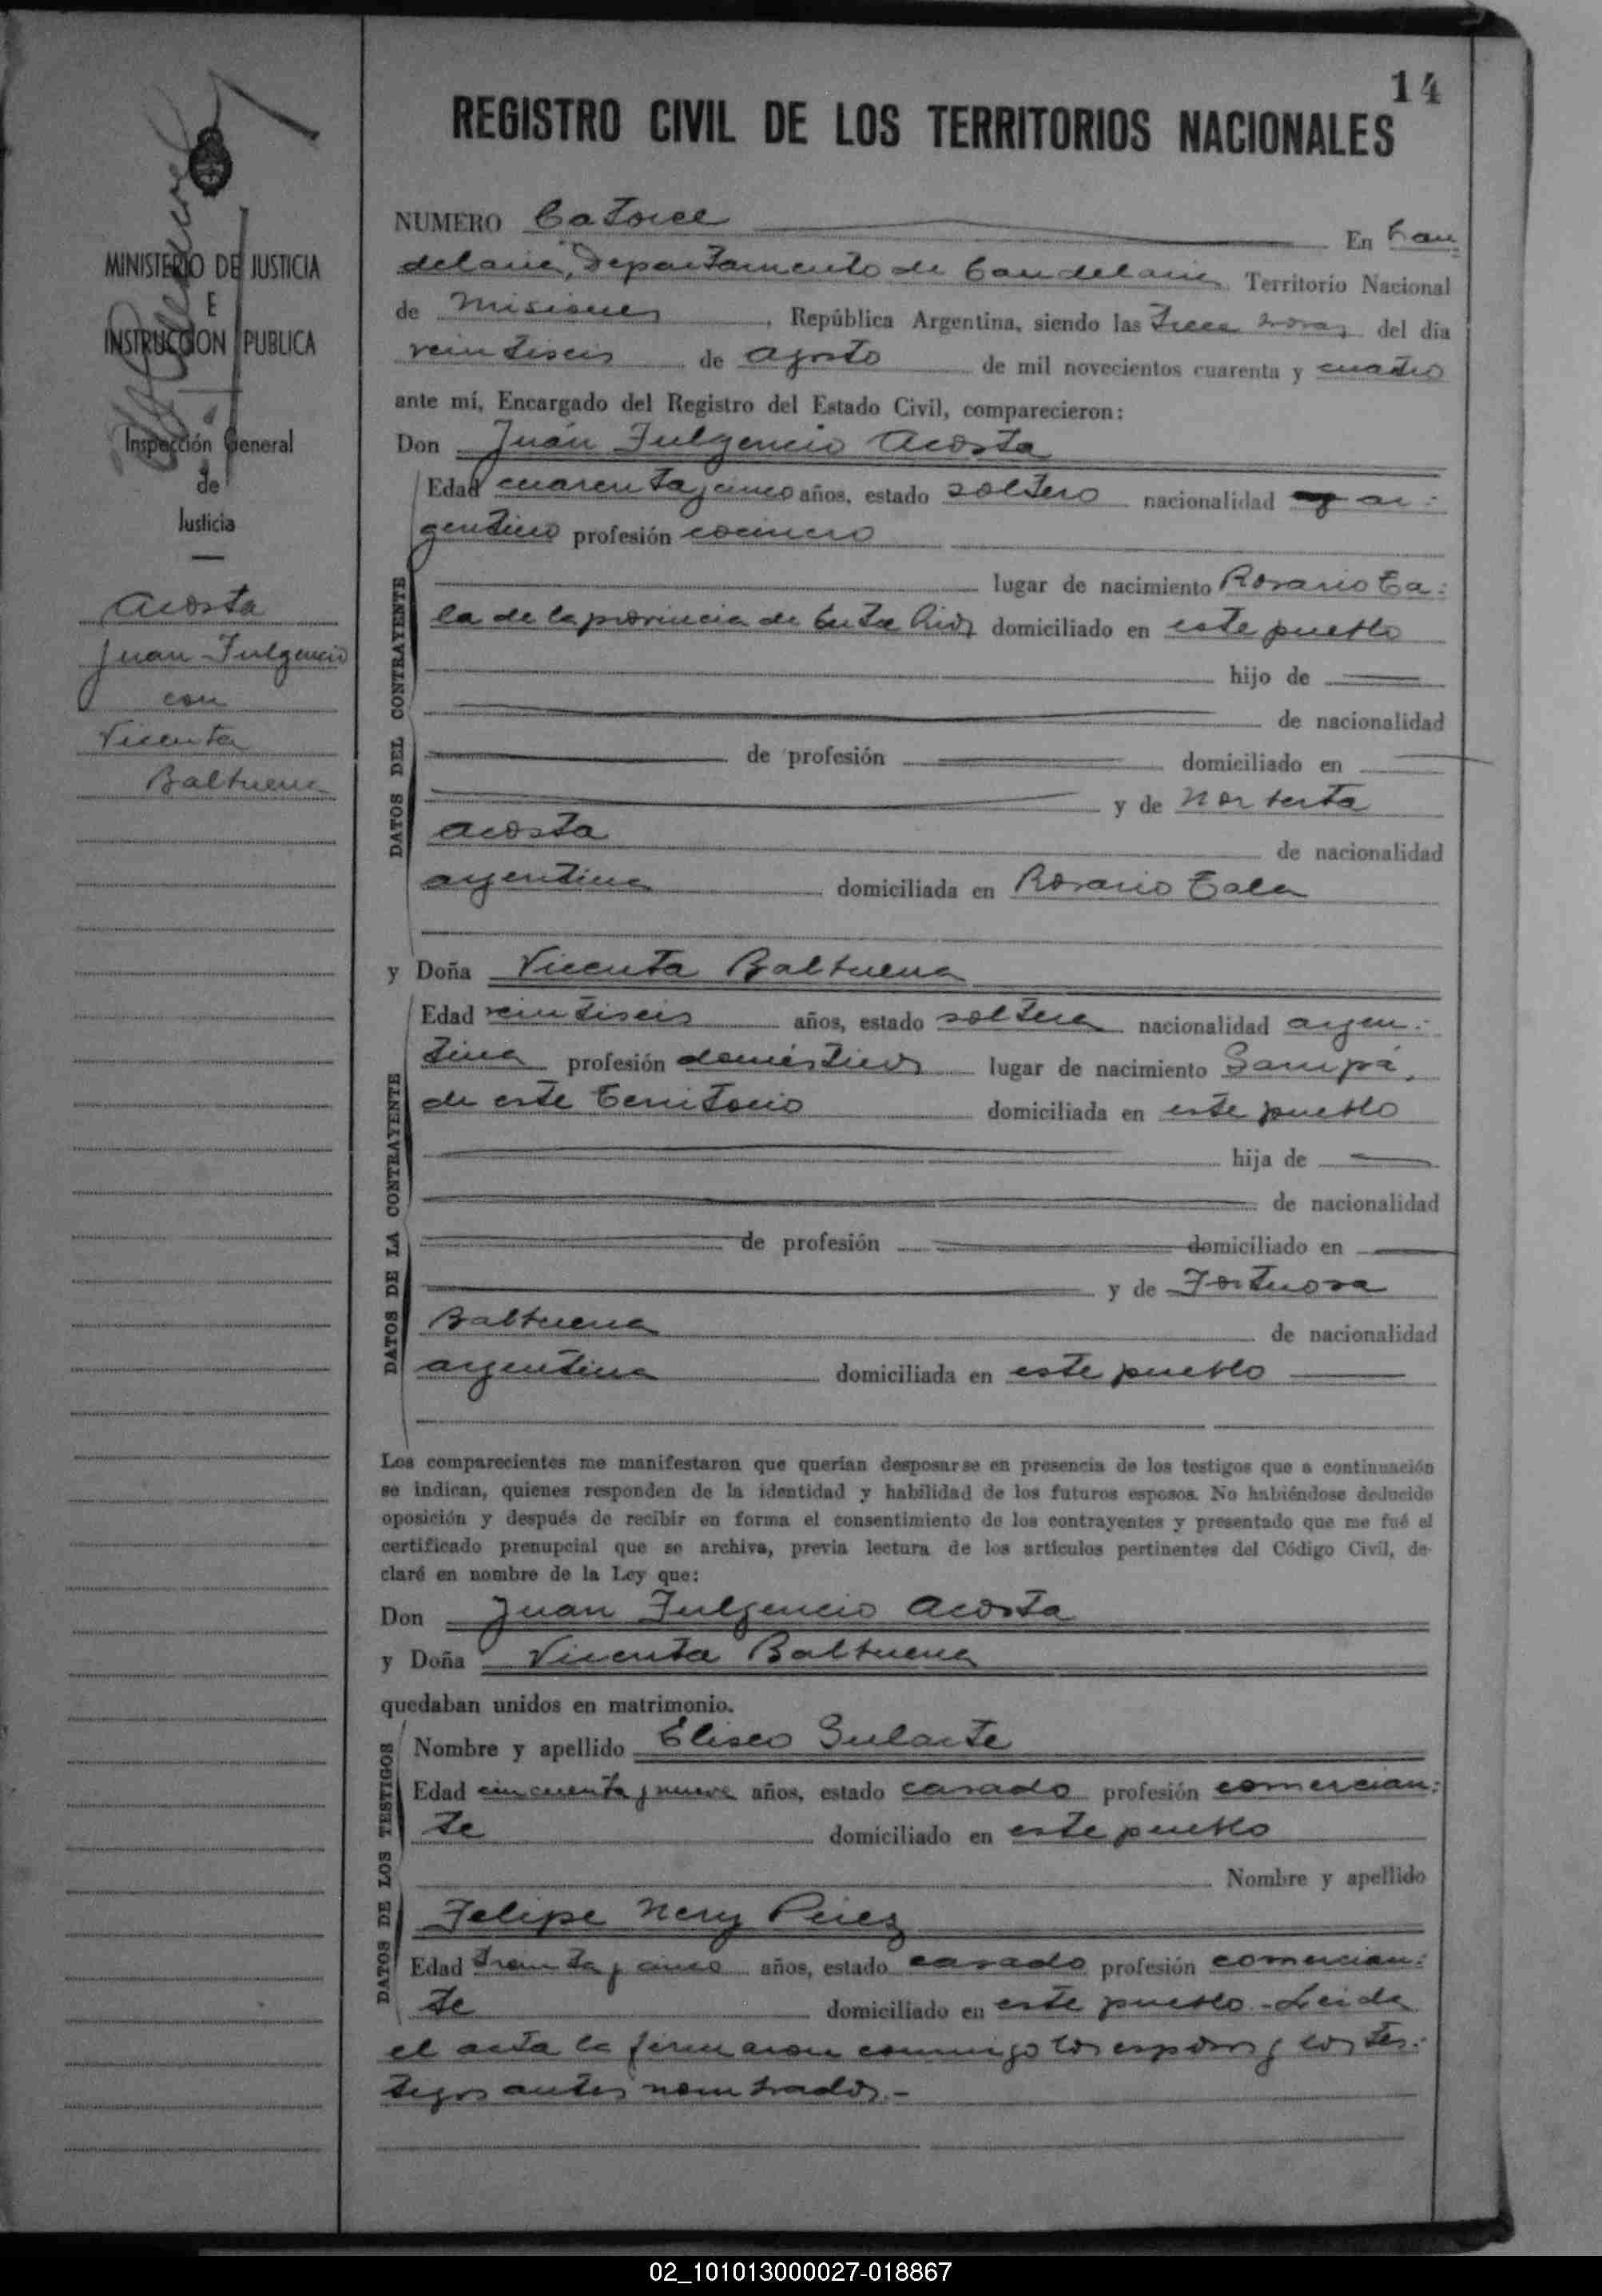 14
REGISTRO CIVIL DE LOS TERRITORIOS NACIONALES
MINISTERIO DE JUSTICIA
E
INSTRUCCION PUBLICA
Inspección General
de
Justicia
Acosta
Juan Fulgencio
con
Vicenta
Balbuena
NUMERO Catorce En Can-
delaria, Departamento de Candelaria Territorio Nacional
de Misiones, República Argentina, siendo las trece horas del día
veintiseis de agosto de mil novecientos cuarenta y cuatro
ante mí, Encargado del Registro del Estado Civil, comparecieron:
Don Juan Fulgencio Acosta
DATOS DEL CONTRAYENTE
Edad cuarenta y cinco años, estado soltero nacionalidad ar-
gentino profesión cocinero
lugar de nacimiento Rosario Ta-
la de la provincia de Entre Rios domiciliado en este pueblo
hijo de
de nacionalidad
de profesión domiciliado en
y de Norberta
Acosta de nacionalidad
argentina domiciliada en Rosario Tala
y Doña Vicenta Balbuena
DATOS DE LA CONTRAYENTE
Edad veintiseis años, estado soltera nacionalidad argen-
tina profesión domésticos lugar de nacimiento
de este Territorio domiciliada en este pueblo
hija de
de nacionalidad
de profesión domiciliado en
y de Fortuosa
Balbuena de nacionalidad
argentina domiciliada en este pueblo
Los comparecientes me manifestaron que querían desposarse en presencia de los testigos que a continuación
se indican, quienes responden de la identidad y habilidad de los futuros esposos. No habiéndose deducido
oposición y después de recibir en forma el consentimiento de los contrayentes y presentado que me fué el
certificado prenupcial que se archiva, previa lectura de los artículos pertinentes del Código Civil, de-
claré en nombre de la Ley que:
Don Juan Fulgencio Acosta
y Doña Vicenta Balbuena
quedaban unidos en matrimonio.
DATOS DE LOS TESTIGOS
Nombre y apellido Eliseo Gularte
Edad cincuenta y nueve años, estado casado profesión comercian-
te domiciliado en este pueblo
Nombre y apellido
Felipe Nery Pérez
Edad treinta y cinco años, estado casado profesión comercian-
te domiciliado en este pueblo - Leida
el acta la firmaron conmigo los esposos y los tes-
tigos antes nombrados.-
02_101013000027-018867